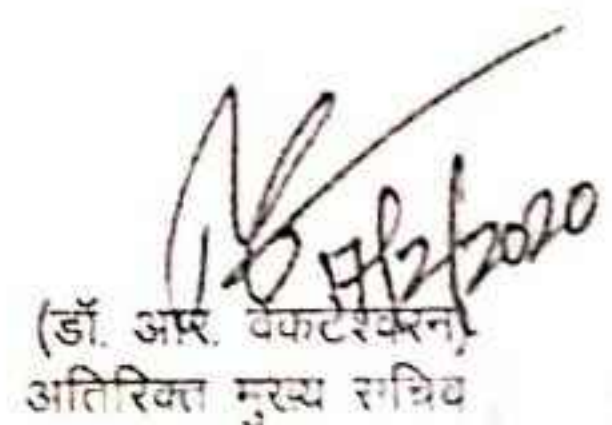 17/2/2020
(डॉ. आर. वेंकटेश्वरन)
अतिरिक्त मुख्य सचिव